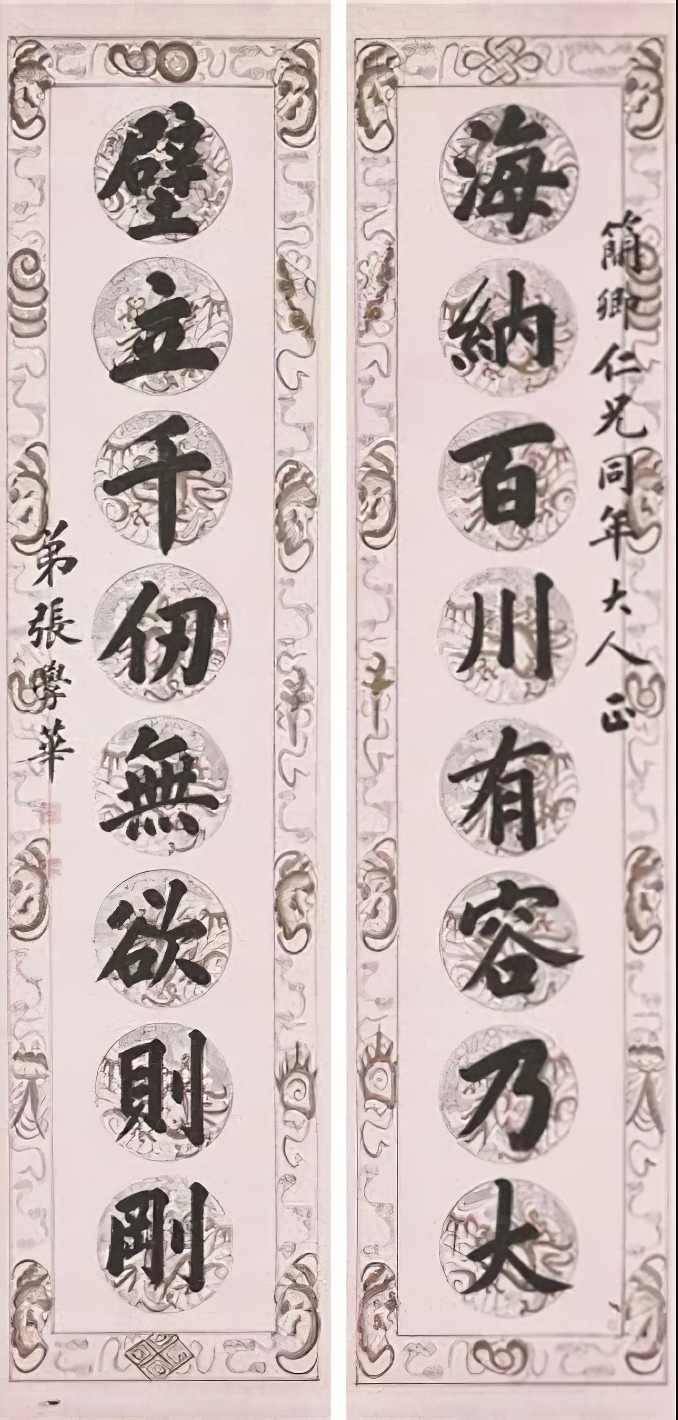 簡卿仁兄同年大人正
海納百川有容乃大
壁立千仞無欲則剛
弟張學華